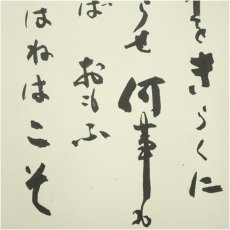 をきらくに
らせ何事も
ば おもふ
はねはこそ